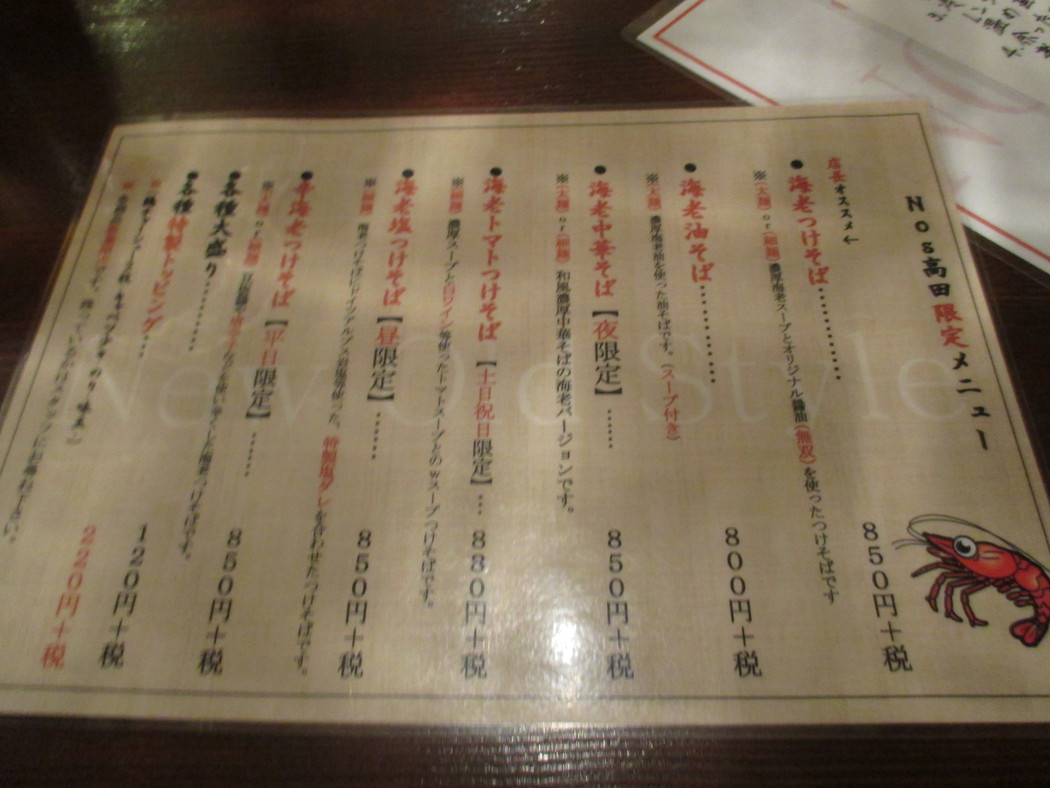 Nos高田限定メニュー
店長オススメ↓
●海老つけそば………… 850円+税
※(太麺)or(細麺)濃厚海老スープとオリジナル醤油(無双)を使ったつけそばです
●海老油そば………… 800円+税
※(太麺)濃厚海老油を使った油そばです。(スープ付き)
●海老中華そば【夜限定】…… 850円+税
※(太麺)or(細麺)和風濃厚中華そばの海老バージョンです。
●海老トマトつけそば【土日祝日限定】… 880円+税
※(細麺)濃厚スープと白ワイン等使ったトマトスープとのWスープつけそばです。
●海老塩つけそば【昼限定】…… 850円+税
※(細麺)海老つけそばにドイツアルプス岩塩等使った、特製塩ダレを合わせたつけそばです。
●辛海老つけそば【平日限定】…… 850円+税
※(太麺)or(細麺)
●各種大盛り………… 120円+税
●各種特製トッピング… 220円+税
New Old Style